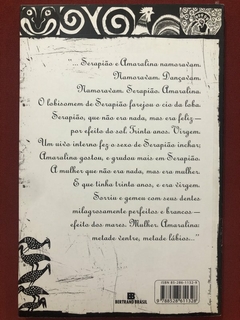 "... Serapião e Amaralina namoravam.
Namoravam. Dançavam.
Namoravam. Serapião. Amaralina.
O lobisomem de Serapião farejou o cio da loba.
Serapião, que não era nada, mas era feliz —
por efeito do sol. Trinta anos. Virgem.
Um uivo interno fez o sexo de Serapião inchar;
Amaralina gostou, e grudou mais em Serapião.
A mulher que não era nada, mas era mulher.
E que tinha trinta anos, e era virgem.
Sorriu e gemeu com seus dentes
milagrosamente perfeitos e brancos —
efeito dos mares. Mulher. Amaralina:
metade ventre, metade lábios..."
BERTRAND BRASIL